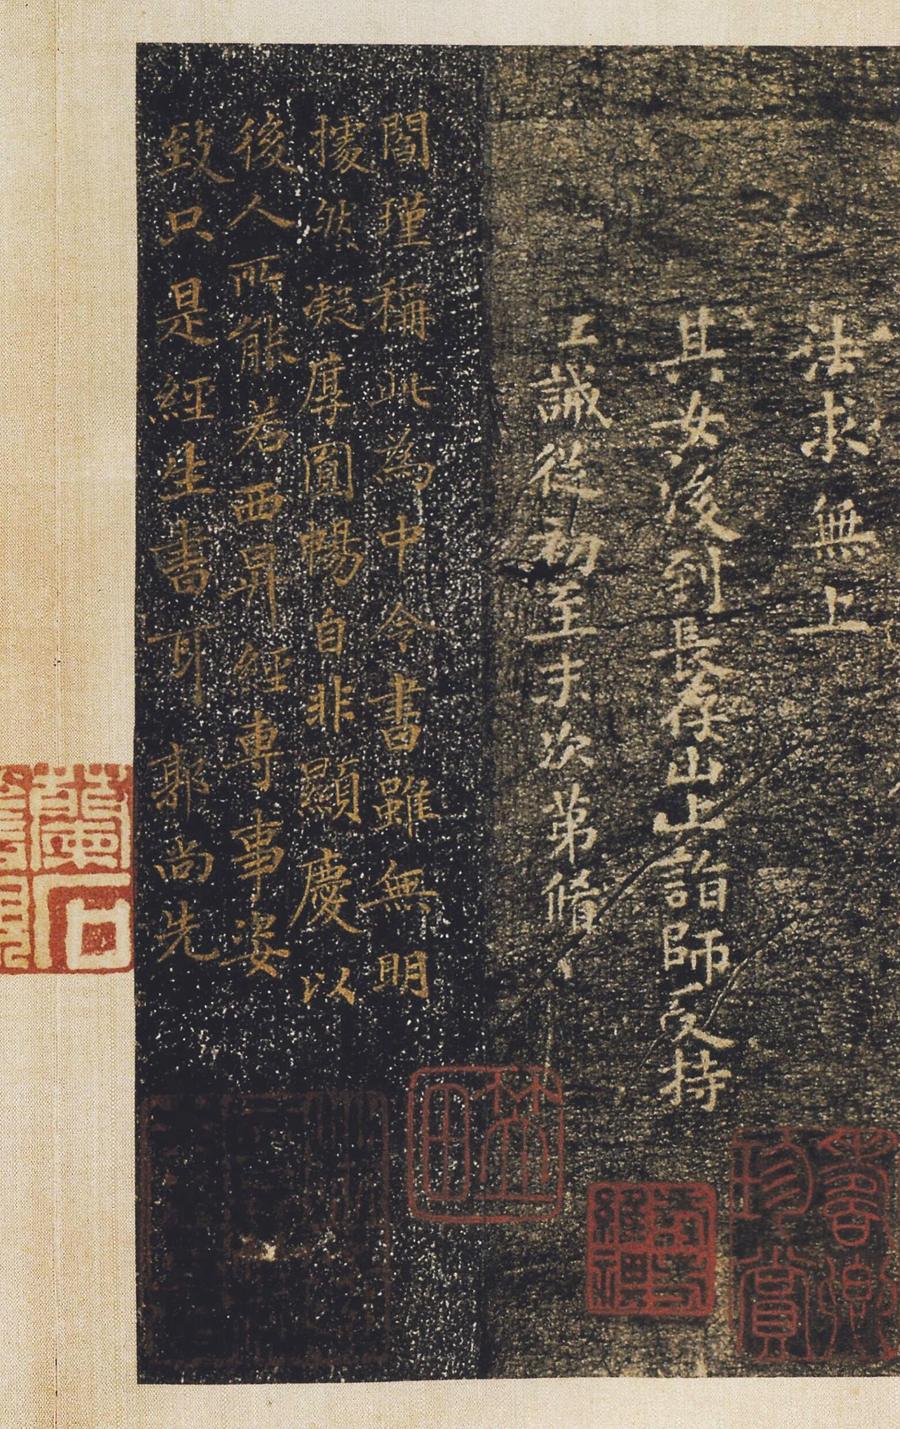 法求無上
其女後到長存山上詣師受持
上誡從初至末次第脩
閻瑾稱此為中令書雖無明
據然凝厚圓暢自非顯慶以
後人所能若西昇經專事姿
致只是經生書耳　郭尚先
蘭石
珍賞